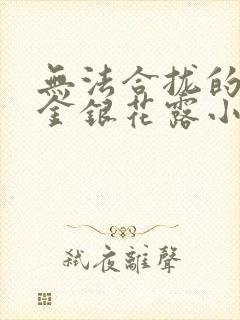 無法合拢的
金銀花露小
弑夜離聲